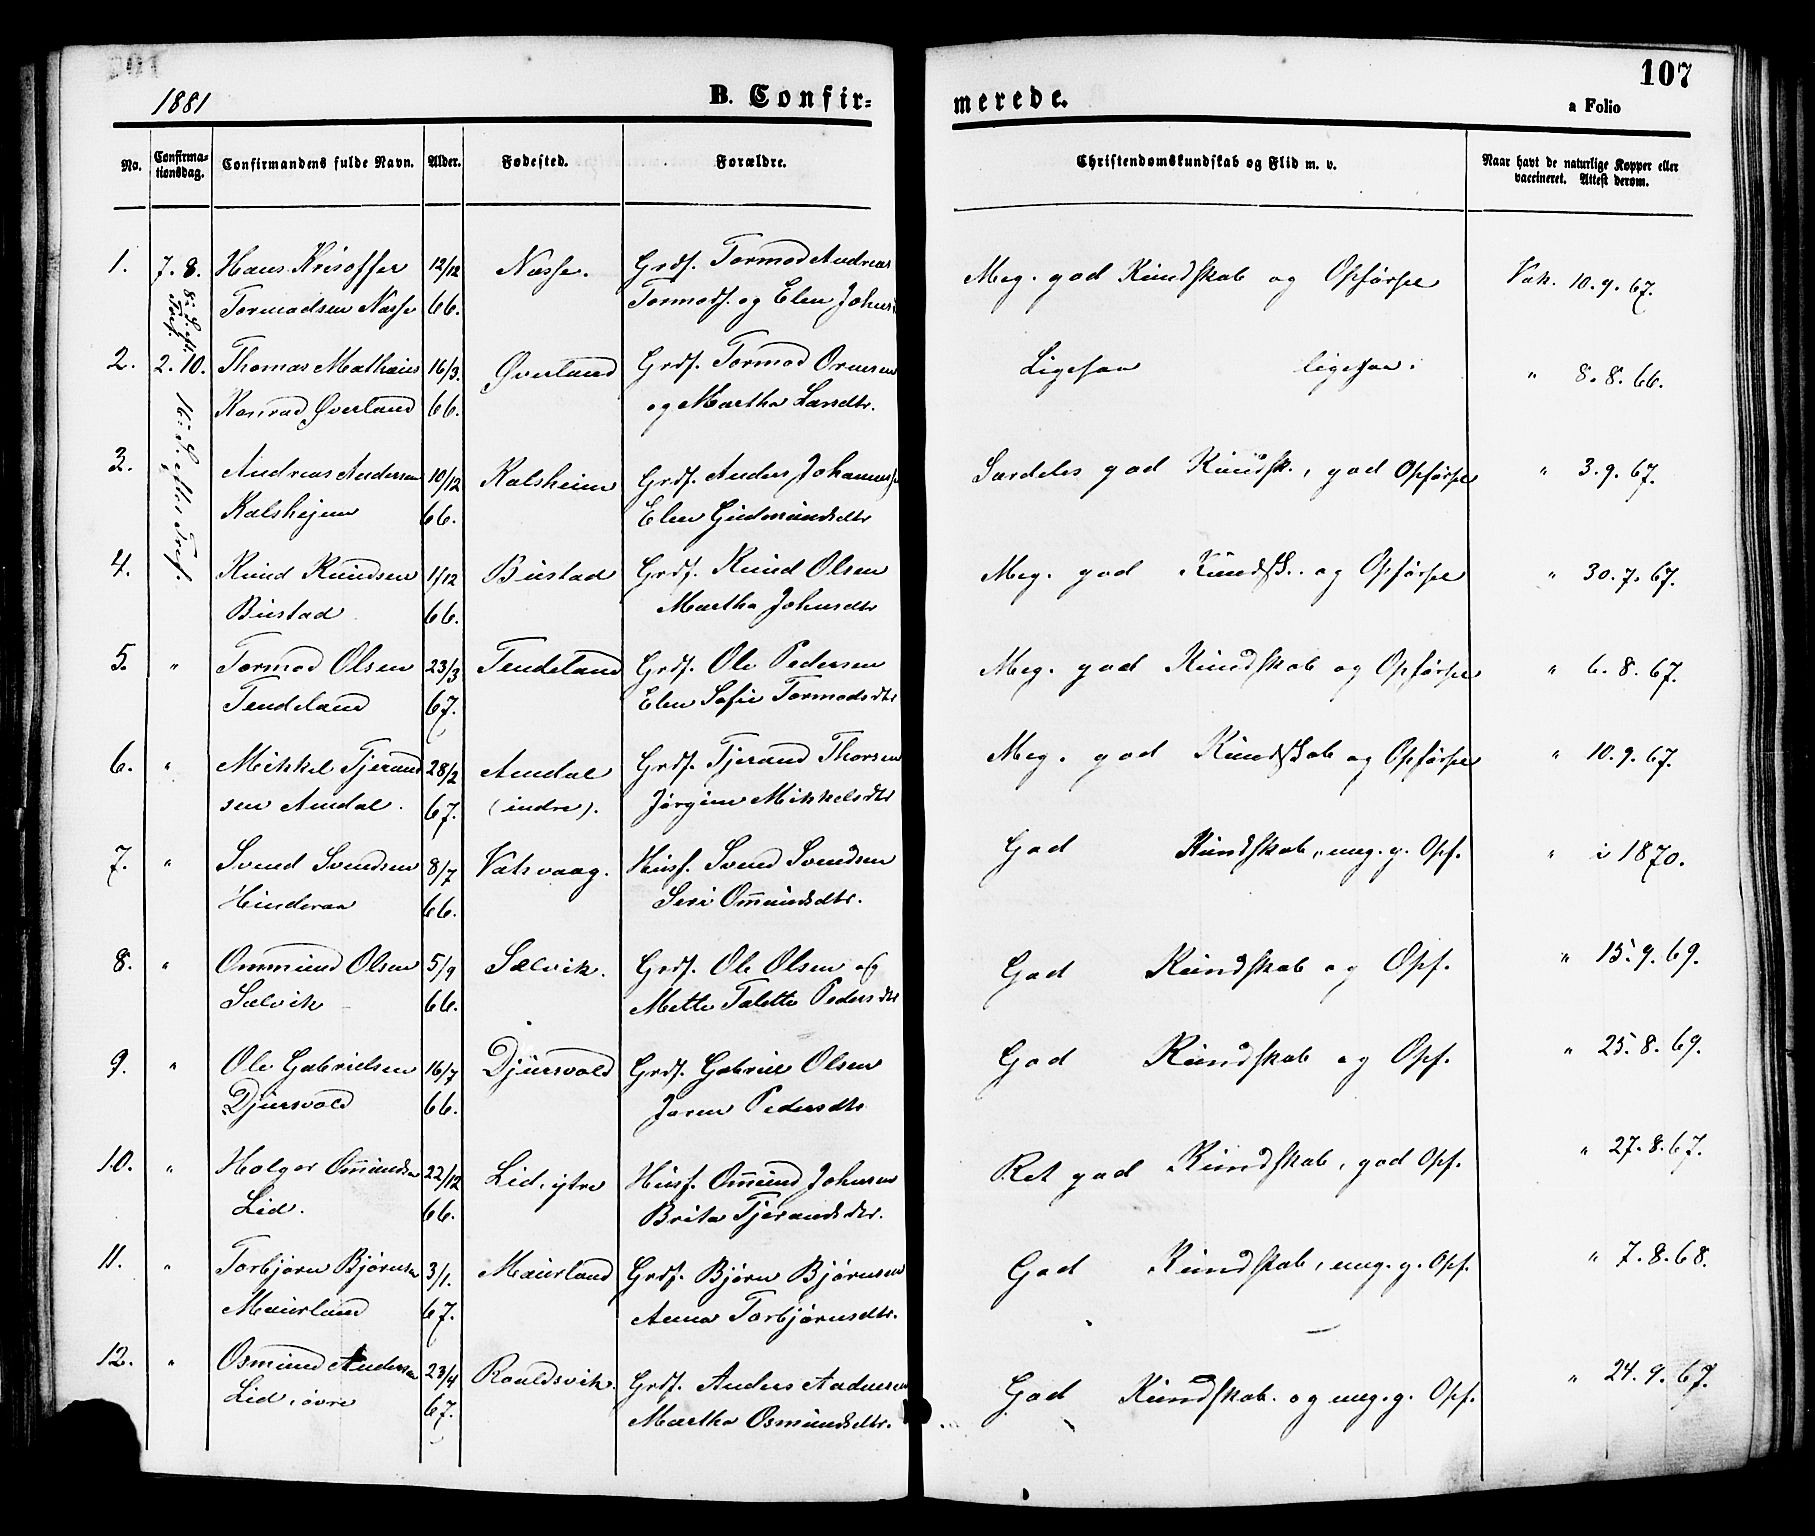 107
1881
B. Confir=
merede.
a Folio
No. Confirma-tionsdag. Confirmandens fulde Navn. Alder. Fødested. Forældre. Christendomskundskab og Flid m. v. Naar havt de naturlige Kopper eller vaccineret. Attest derom.
1. 7. 8. Hans Krisoffer 12/12 Næsse. Grdf. Tormod Andreas Meg. god Kundskab og Opførsel Vak. 10. 9. 67.
8. S. eft. Tref.
Tormodsen Næsse 66. Tormods. og Elen Johns
2. 2. 10. Thomas Mathæus 16/3. Øverland Grdf. Tormod Ornesen Ligesaa ligesaa. " 8. 8. 66.
16. S. efter Tref.
Konrad Øverland 66. og Martha Larsdtr.
3. Andreas Andersen 10/12 Kalsheim Grdf. Anders Johannes Særdeles god Kundsk., god Opførsel " 3. 9. 67.
Kalshejem 66. Elen Gudmundsdtr
4. Knud Knudsen 1/12 Bustad Grdf. Knud Olsen Meg. god Kundsk. og Opførsel " 30. 7. 67.
Bustad 66. Martha Johnsdtr
5. " Tormod Olsen 23/3 Tendeland Grdf. Ole Pedersen Meg. god Kundskab og Opførsel " 6. 8. 67.
Tendeland 67. Elen Sofie Tormodsdtr
6. " Mikkel Tjerand 28/2 Amdal Grdf. Tjerand Thorsen Meg. god Kundskab og Opførsel " 10. 9. 67.
sen Amdal. 67. (indre). Jørgine Mikkelsdtr
7. " Svend Svendsen 8/7 Vatsvaag. Husf. Svend Svendsen God Kundskab, meg. g. Opf. " i 1870.
Hinderaa 66. Siri Om̅undsdtr.
8. " Ommund Olsen 5/9 Sælvik. Grdf. Ole Olsen og God Kundskab og Opf. " 15. 9. 69.
Sælvik 66. Mette Talette Pedersdtr
9. " Ole Gabrielsen 16/7 Djursvold Grdf. Gabriel Olsen God Kundskab og Opf. " 25. 8. 69.
Djursvold 66. Joren Pedersdtr
10. " Holger Om̅undsen 22/12 Lid, ytre Husf. Om̅und Johnsen Ret god Kundskab, god Opf. " 27. 8. 67.
Lid. 66. Brita Tjerandsdtr.
11. " Torbjørn Bjørnsen 3/1. Maurland Grdf. Bjørn Bjørnsen God Kundskab, meg. g. Opf. " 7. 8. 68.
Maurland 67. Anna Torbjørnsdtr.
12. " Osmund Andersen 23/4 Roaldsvik. Grdf. Anders Andersen God Kundskab. og meg. g. Opf. " 24. 9. 67.
Lid, øvre 67. Martha Osmundsdtr.